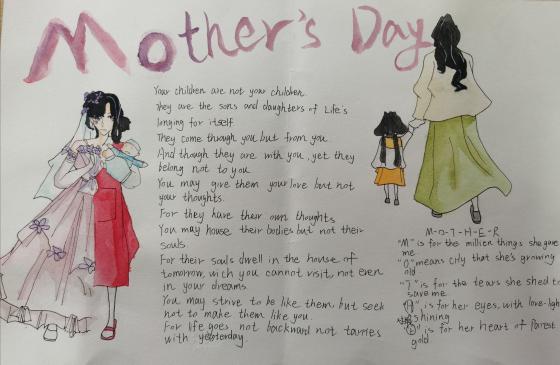 Mother's Day
Your children are not your children.
They are the sons and daughters of Life's
longing for itself.
They come through you but from you.
And though they are with you, yet they
belong not to you.
You may give them your love but not
your thoughts.
For they have their own thoughts
You may house their bodies but not their
souls.
For their souls dwell in the house of
tomorrow, wich you cannot visit, not even
in your dreams.
You may strive to be like them, but seek
not to make them like you.
For life goes, not backward not tarries
with yesterday.
M-O-T-H-E-R
"M" is for the million things she gave
me
"O" means only that she's growing
old
"T" is for the tears she shed to
save me
"H" is for her eyes, with love-light
shining
is for her heart of purest
gold